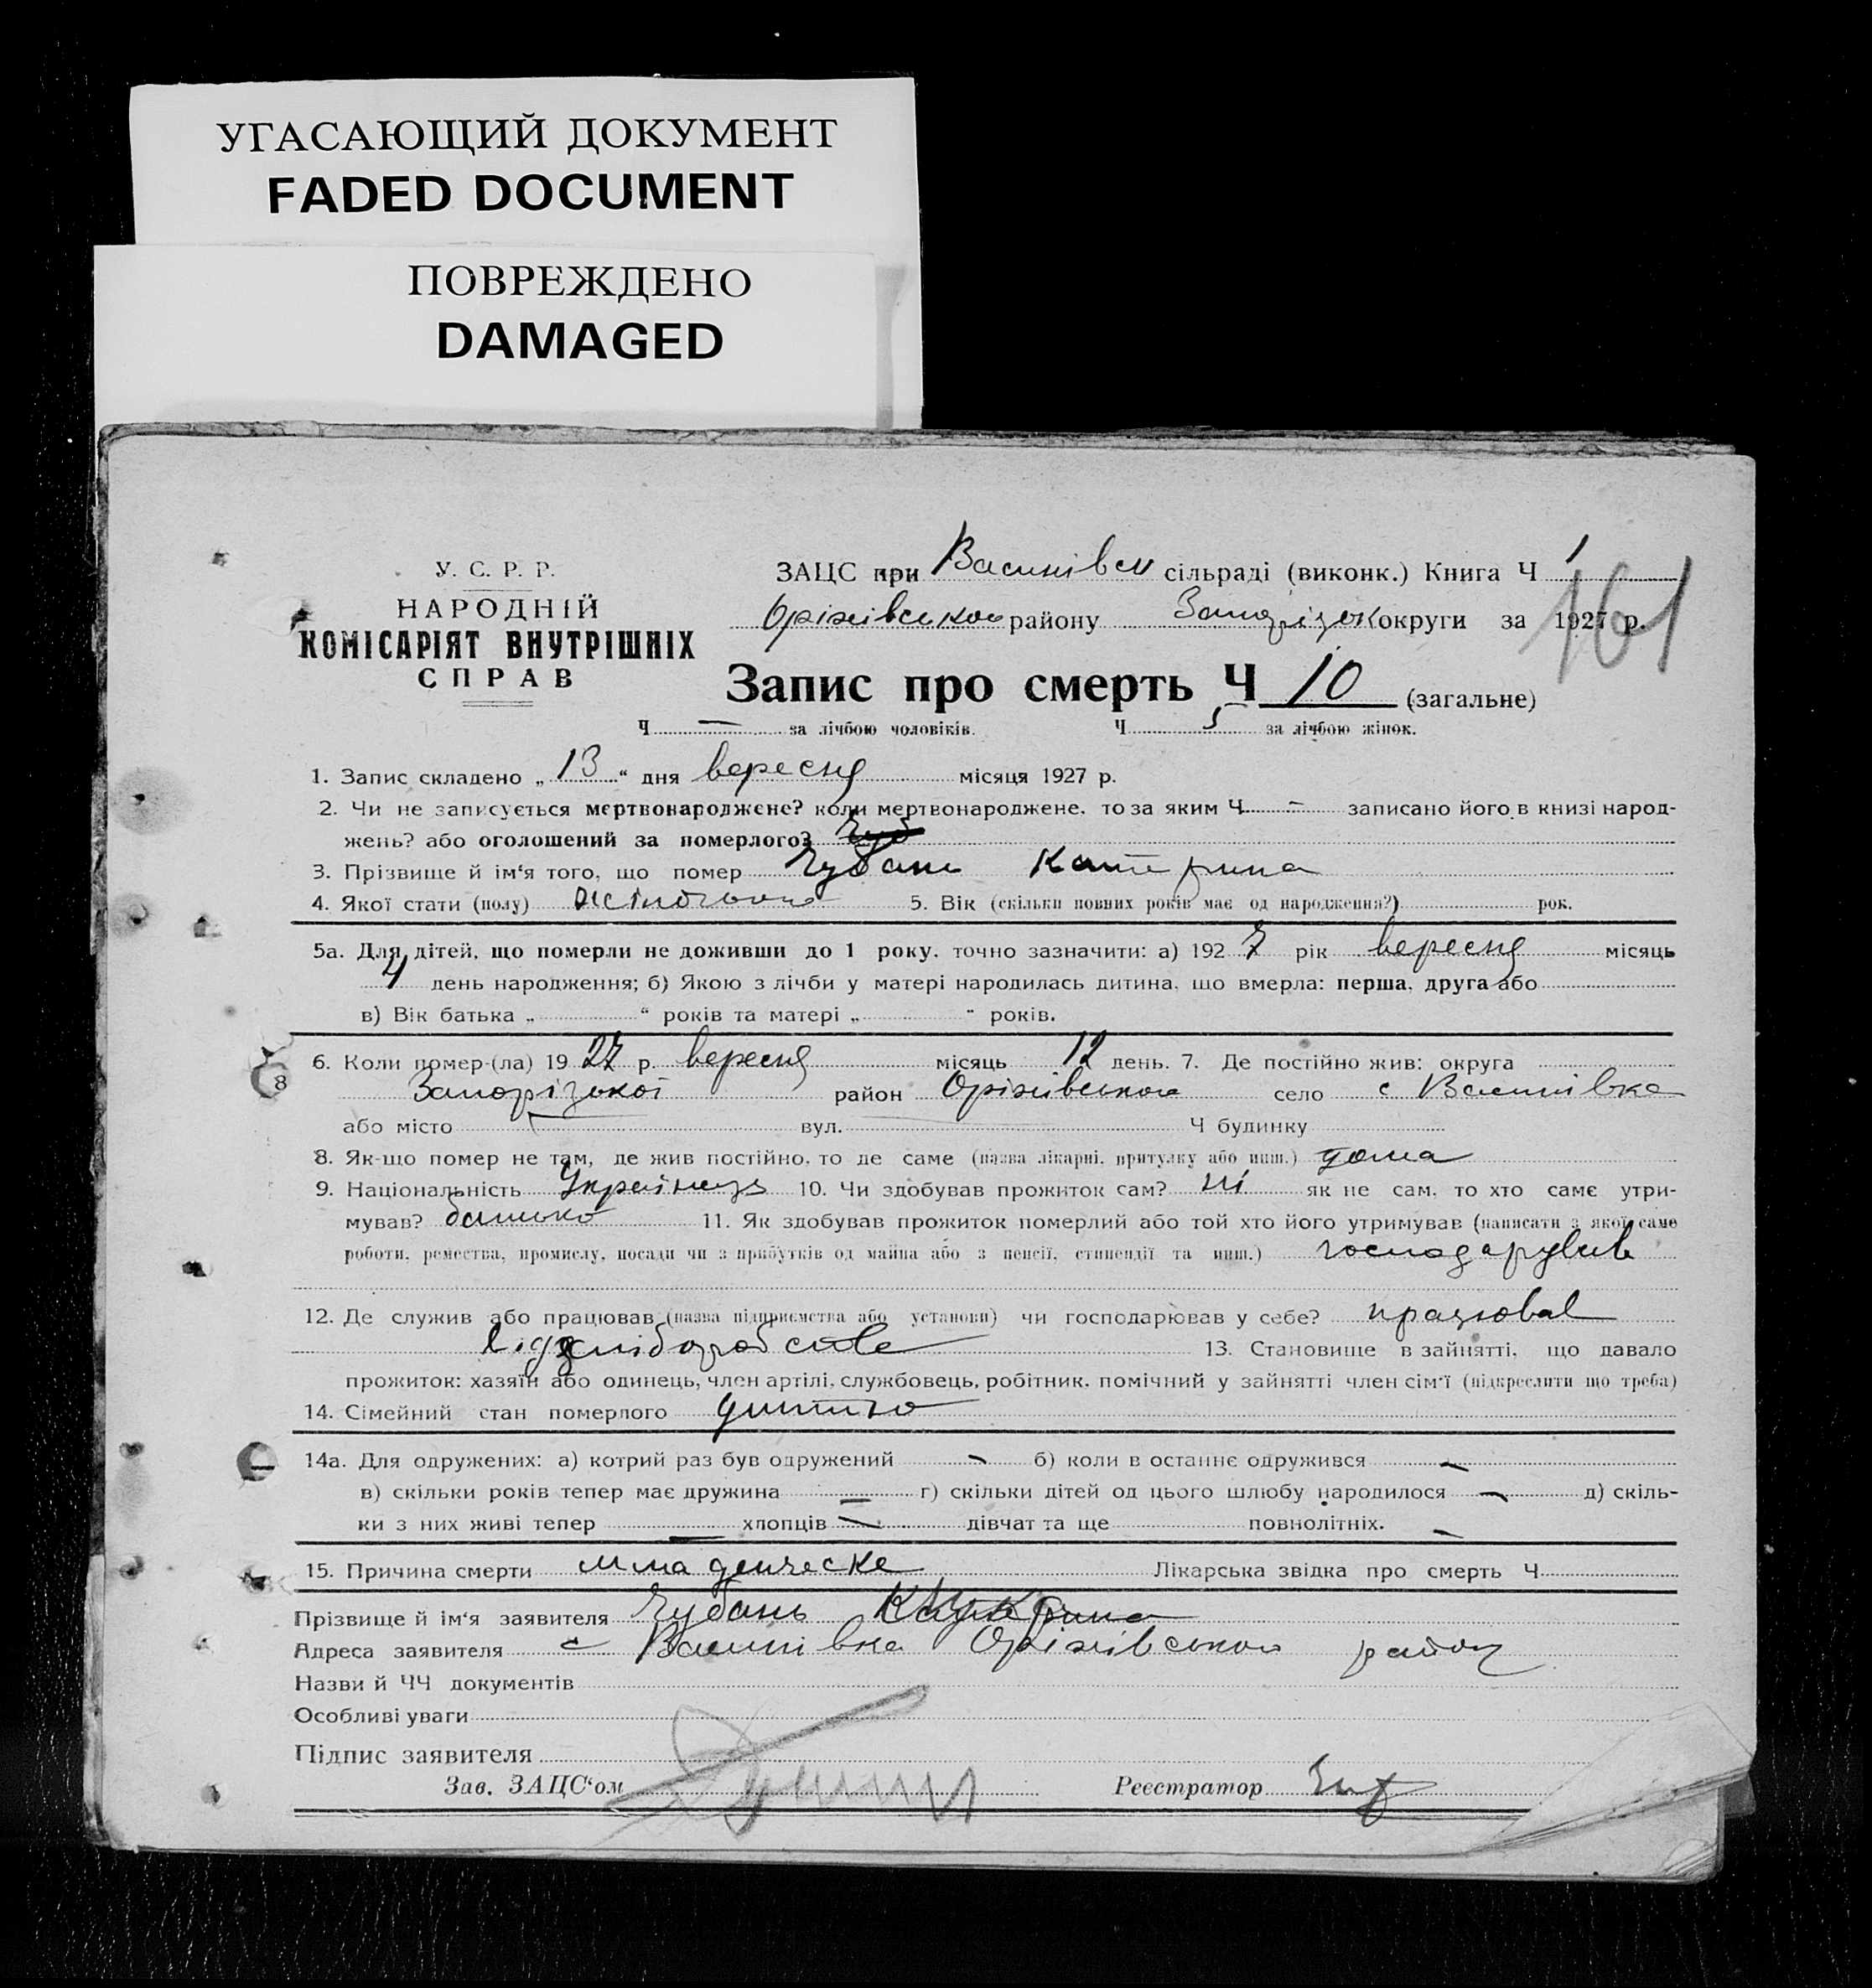 УГАСАЮЩИЙ ДОКУМЕНТ
FADED DOCUMENT
ПОВРЕЖДЕНО
DAMAGED
У. С. Р. Р.
НАРОДНІЙ
КОМІСАРІЯТ ВНУТРІШНІХ
СПРАВ
ЗАЦС при сільраді (виконк.) Книга Ч 1
Оріхівського району Запорізьк округи за 1927 р.
161
Запис про смерть Ч 10 (загальне)
Ч — за лічбою чоловіків. Ч 5 за лічбою жінок.
1. Запис складено „ 13 “ дня вересня місяця 1927 р.
2. Чи не записується мертвонароджене? коли мертвонароджене, то за яким Ч – записано його в книзі народ-
жень? або оголошений за померлого? Чуб
3. Прізвище й ім‘я того, що помер Чубань Катерина
4. Якої стати (полу) 5. Вік (скільки повних років має од народження?) рок.
5а. Для дітей, що померли не доживши до 1 року, точно зазначити: а) 192 7 рік вересня місяць
4 день народження; б) Якою з лічби у матері народилась дитина, що вмерла: перша, друга або
в) Вік батька „ “ років та матері „ “ років.
6. Коли помер-(ла) 19 27 р. вересня місяць 12 день. 7. Де постійно жив: округа
8
Запорізької район Оріхівського село с
або місто вул. Ч будинку
8. Як-що помер не там, де жив постійно, то де саме (назва лікарні, притулку або инш.) дома
9. Національність 10. Чи здобував прожиток сам? ні як не сам, то хто саме утри-
мував? батько 11. Як здобував прожиток померлий або той хто його утримував (написати з якої саме
роботи, ремества, промислу, посади чи з прибутків од майна або з пенсії, стипендії та инш.) господарував
12. Де служив або працював (назва підприємства або установи) чи господарював у себе? працював
13. Становище в зайнятті, що давало
прожиток: хазяїн або одинець, член артілі, службовець, робітник, помічний у зайнятті член сім‘ї (підкреслити що треба)
14. Сімейний стан померлого дитина
14а. Для одружених: а) котрий раз був одружений – б) коли в останнє одружився –
в) скільки років тепер має дружина – г) скільки дітей од цього шлюбу народилося – д) скіль-
ки з них живі тепер – хлопців – дівчат та ще повнолітніх. –
15. Причина смерти младенческе Лікарська звідка про смерть Ч
Прізвище й ім‘я заявителя Чубань
Адреса заявителя с Оріхівського району
Назви й ЧЧ документів
Особливі уваги
Підпис заявителя
Зав. ЗАЦС‘ом Реєстратор